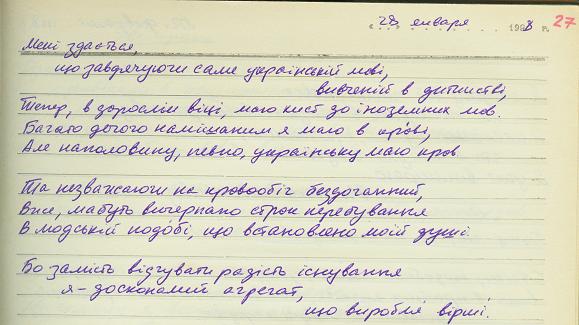 28 января 1998 г. 27
Мені здається,
що завдячуючи саме українській мові,
вивченій в дитинстві,
Тепер, в дорослім віці, маю хист до іноземних мов.
Багато дечого намішаним я маю в крові,
Але наполовину, певно, українську маю кров.
Та незважаючи на кровообіг бездоганний,
Вже, мабуть вичерпано строк перебування
В людській подобі, що встановлено моїй душі.
Бо замість відчувати радість існування
я - досконалий агрегат,
що виробля вірші.